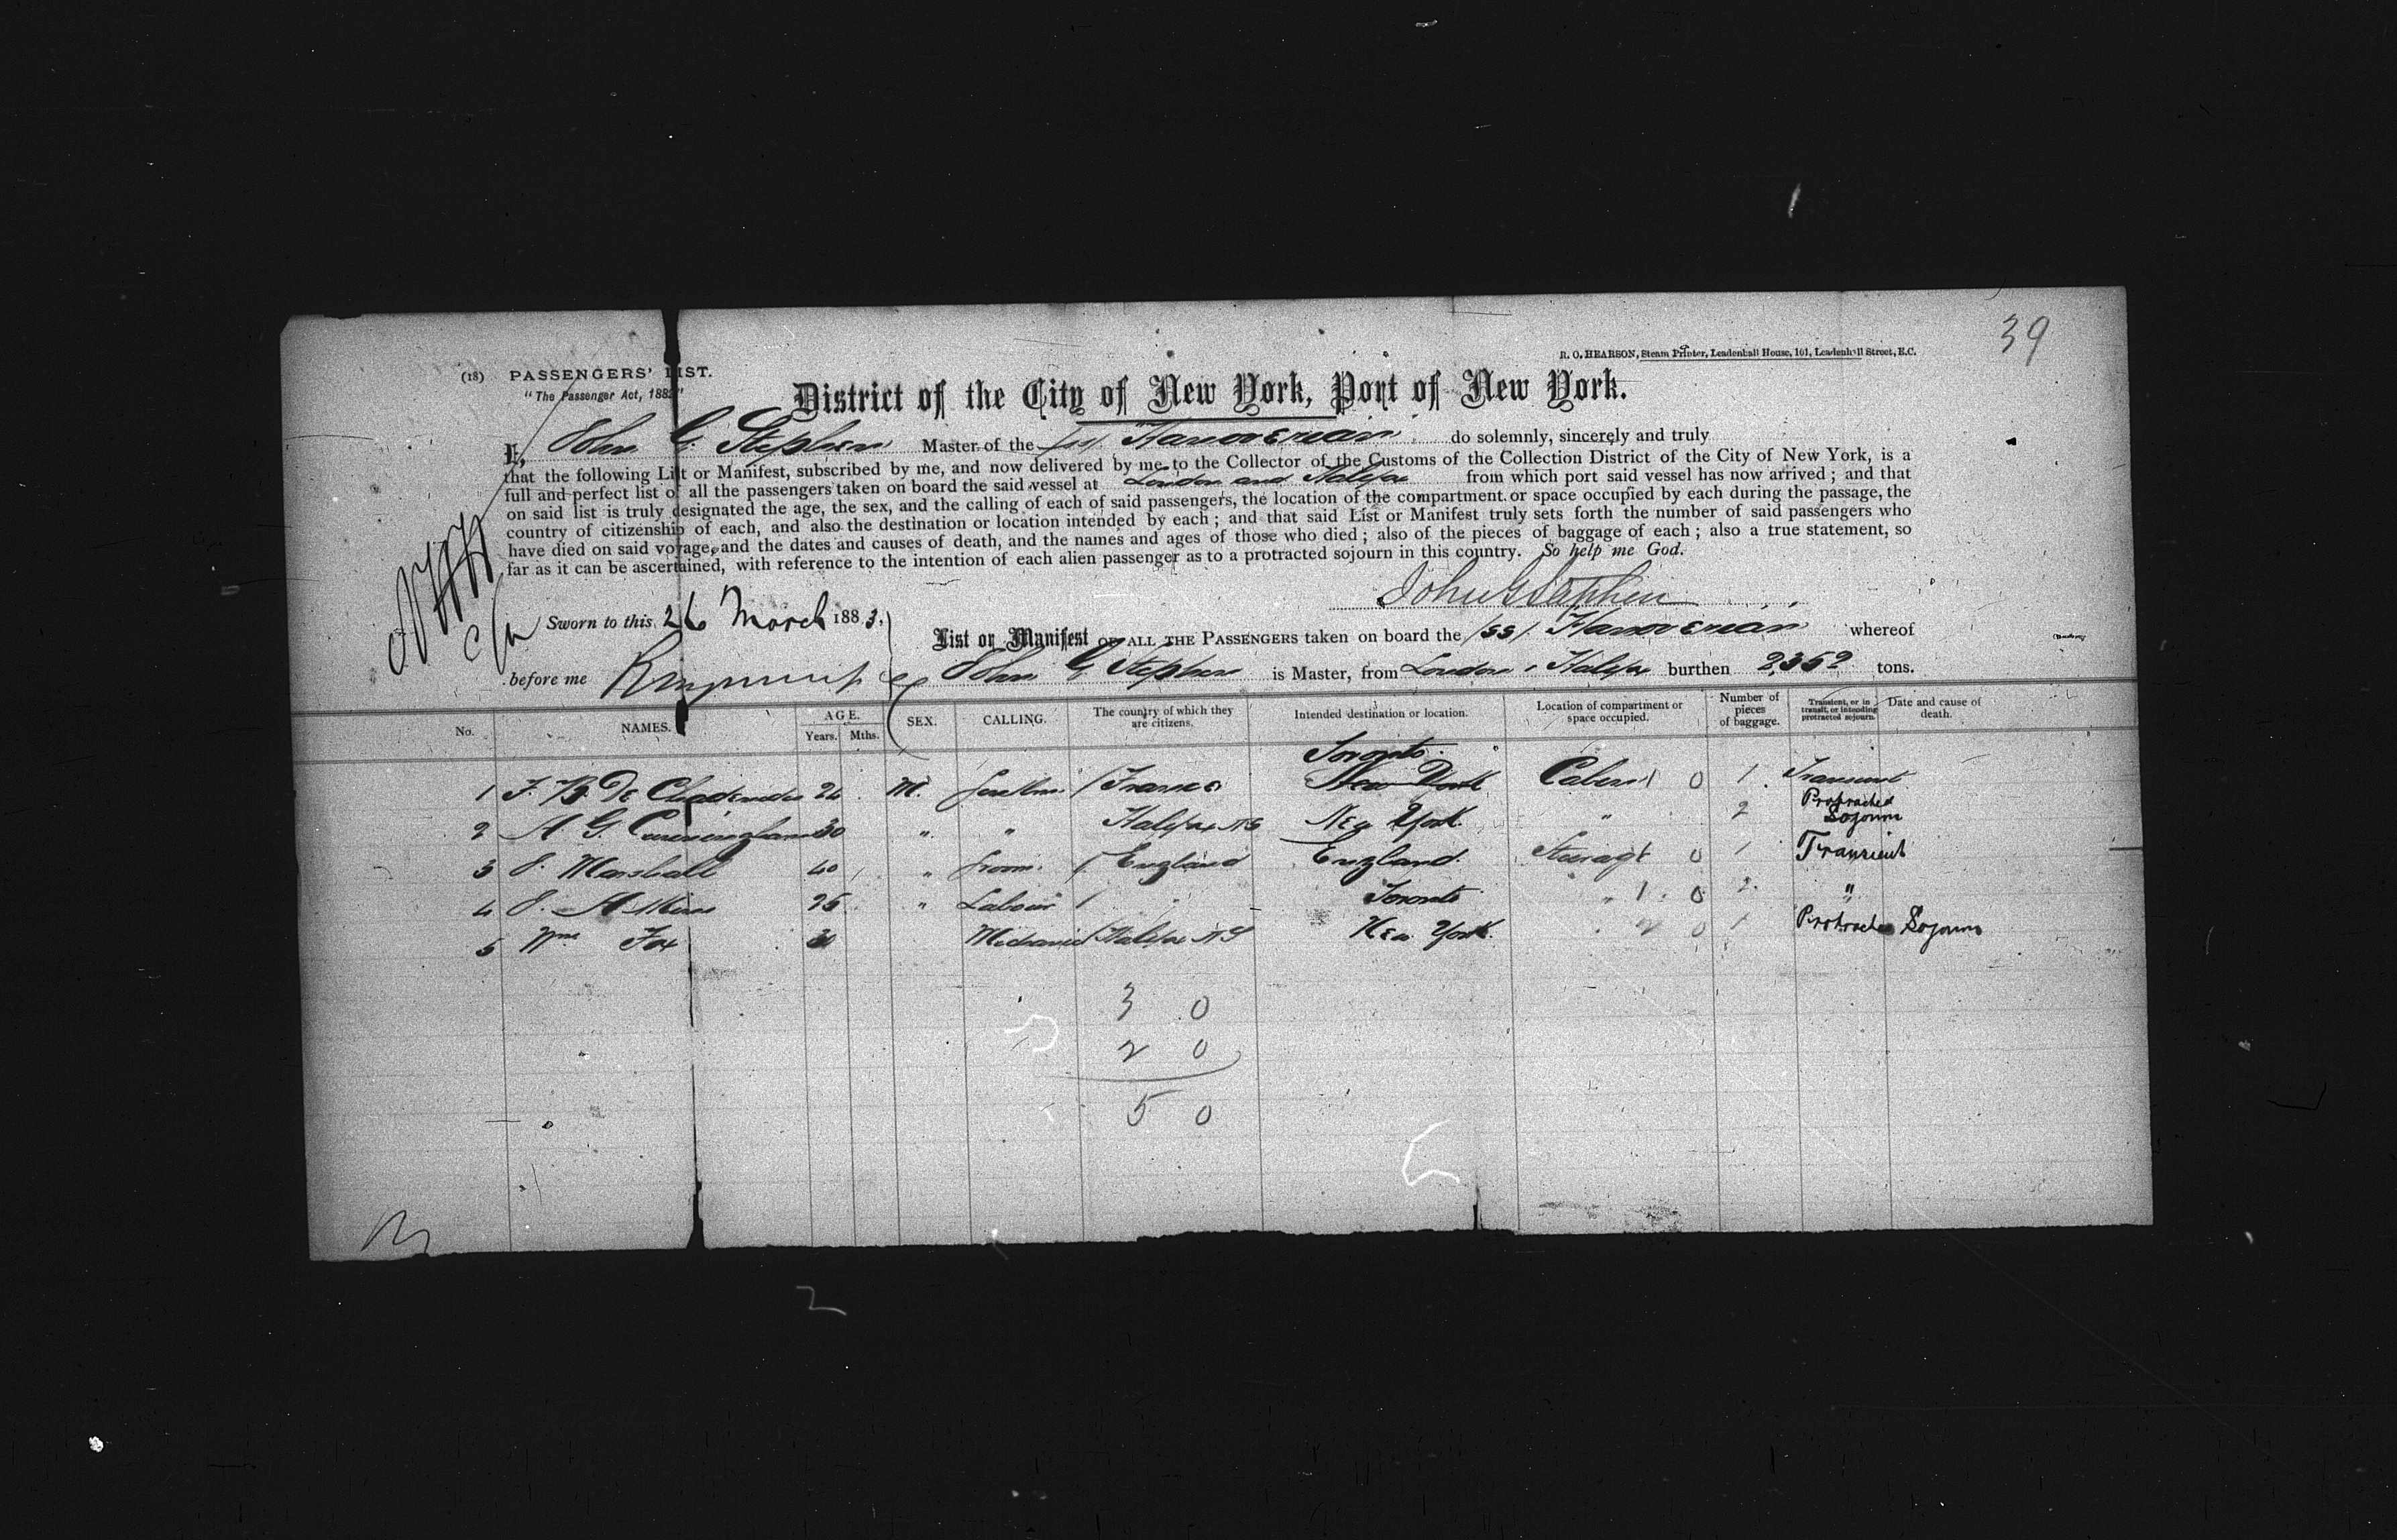 39
R. O. HEARSON, Steam Printer, Leadenhall House, 101, Leadenhall Street, E.C.
(18) PASSENGERS' LIST.
"The Passenger Act, 1882"
District of the City of New York, Port of New York.
I, John G. Stephen Master of the (ss) Hanoverian do solemnly, sincerely and truly
that the following List or Manifest, subscribed by me, and now delivered by me to the Collector of the Customs of the Collection District of the City of New York, is a
full and perfect list of all the passengers taken on board the said vessel at London and Halifax from which port said vessel has now arrived; and that
on said list is truly designated the age, the sex, and the calling of each of said passengers, the location of the compartment or space occupied by each during the passage, the
country of citizenship of each, and also the destination or location intended by each; and that said List or Manifest truly sets forth the number of said passengers who
have died on said voyage, and the dates and causes of death, and the names and ages of those who died; also of the pieces of baggage of each; also a true statement, so
far as it can be ascertained, with reference to the intention of each alien passenger as to a protracted sojourn in this country. So help me God.
John G Stephen
Sworn to this 26 March 1883,
List or Manifest OF ALL THE PASSENGERS taken on board the (ss) Hanoverian whereof
before me John G Stephen is Master, from London & Halifax burthen 2352 tons.
No. NAMES. AGE. Years. Mths. SEX. CALLING. The country of which they are citizens. Intended destination or location. Location of compartment or space occupied. Number of pieces of baggage. Transient, or in transit, or intending protracted sojourn. Date and cause of death.
Toronto
1 J. B. De 24 M. France New York Cabin 1 0 1 Transient
2 A G. Cunningham 30 " " Halifax NS New York " 2 Protracted Sojourn
3 J. Marshall 40 " Groom England England Steerage 0 1 Transient
4 J. 25 " Labour " Toronto " 1 0 2 "
5 Wm Fox Mechanic Halifax NS New York " 2 0 1 Protracted Sojourn
3 0
2 0
5 0